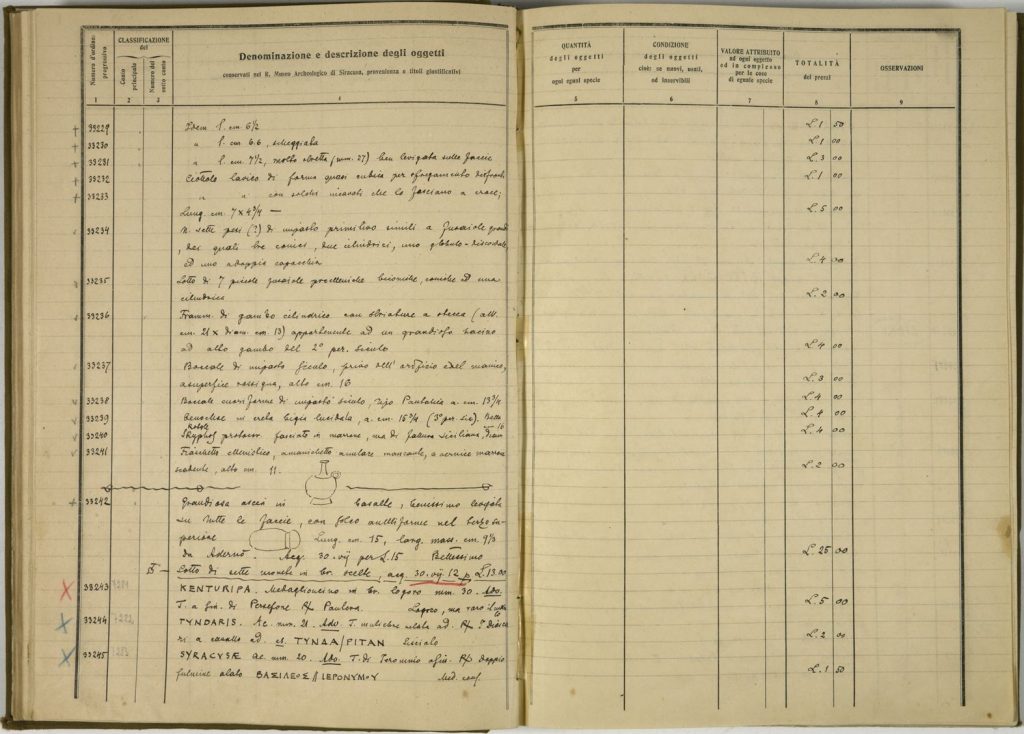 Numero d'ordine progressivo
CLASSIFICAZIONE del
Conto principale
Numero del sotto conto
Denominazione e descrizione degli oggetti
conservati nel R. Museo Archeologico di Siracusa, provenienza e titoli giustificativi
QUANTITÀ degli oggetti per ogni specie
CONDIZIONE degli oggetti cioè: se nuovi, usati, od inservibili
VALORE ATTRIBUITO ad ogni oggetto od in complesso per le cose di eguale specie
TOTALITÀ dei prezzi
OSSERVAZIONI
1 2 3 4 5 6 7 8 9
33229 Idem l. cm 6½ L. 1 50
33230 " l. cm 6.6, scheggiata L. 1 00
33231 " l. cm. 7½, molto stretta (mm. 27) ben levigata sulle faccie L. 3 00
33232 Ciottolo lavico di forma quasi cubica per sfregamento L. 1 00
33233 " " con solchi incavati che lo fasciano a croce;
Lung. cm. 7 x 4¾ — L. 5 00
33234 N. sette pesi (?) di impasto primitivo simili a fusaiole grandi
, dei quali tre conici, due cilindrici, uno globulo-discoidale
ed uno a doppia capocchia L. 4 00
33235 Lotto di 7 piccole fusaiole preelleniche biconiche, coniche ed una
cilindrica L. 2 00
33236 Framm. di gambo cilindrico con striature a stecca (alt.
cm. 21 x diam. cm. 13) appartenente ad un grandioso bacino
ad alto gambo del 2° per. siculo L. 4 00
33237 Boccale di impasto siculo, privo dell'orifizio e del manico,
a superfice rossigna, alto cm. 16 L. 3 00
33238 Boccale cuoriforme di impasto siculo, tipo Pantalica a. cm. 13¾ L. 4 00
33239 in creta bigia lucidata, a. cm. 15¾ (3° per. sic). Bello L. 4 00
33240 Skyphos protocor. fasciato in marrone, ma di fattura siciliana, diam 16 L. 4 00
33241 Fiaschetto ellenistico, a manichetto anulare mancante, a vernice marrone
scadente, alto cm. 11. L. 2 00
33242 Grandiosa ascia in basalte, benissimo levigata
su tutte le faccie, con solco anelliforme nel terzo su-
periore Lung. cm. 15, larg. mass. cm. 9½
da Adernò. Acq. 30. vij per L. 15 Bellissimo L. 25 00
Lotto di sette monete in br. scelte, acq. 30. vij. 12 p L. 13.00
33243 KENTURIPA. Medaglioncino in br. logoro mm. 30. Ado.
T. a sin. di Persefone R/ Pantera. Logoro, ma raro L. 5 00
33244 TYNDARIS. Ae mm. 21. Ado T. muliebre velata a d. R/ I Diòscu
ri a cavallo a d. ΤΥΝΔΑ/ΡΙΤΑΝ L. 2 00
33245 SYRACVSÆ Ae mm. 20. Ado. T. di Ieronimo a sin. R/ doppio
fulmine alato ΒΑΣΙΛΕΟΣ/ΙΕΡΟΝΥΜΟΥ Med. cons. L. 1 50